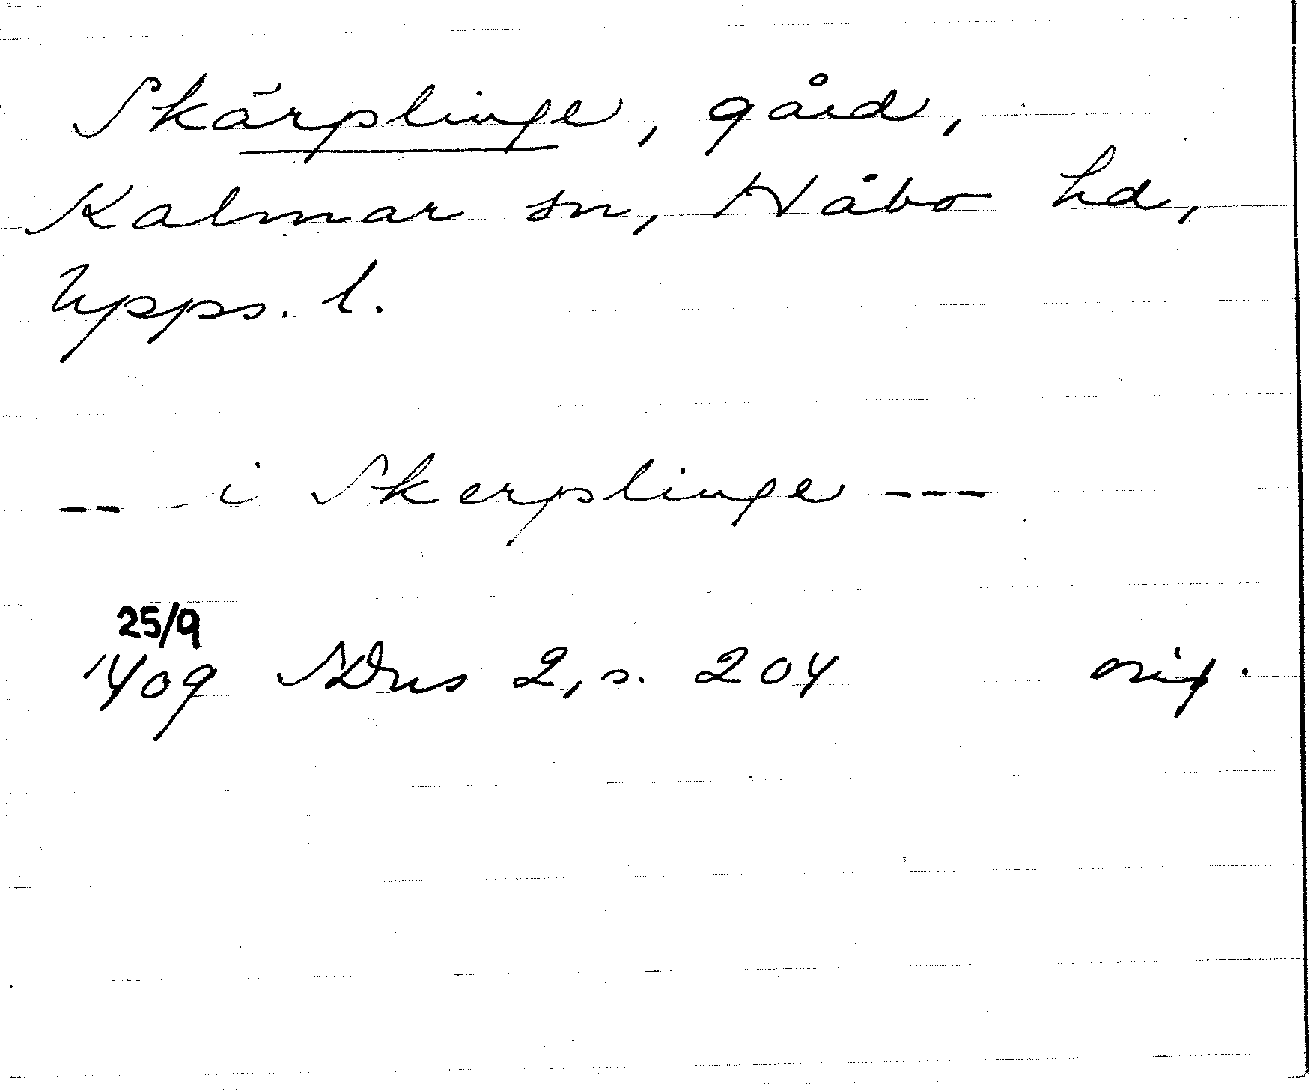 Skärplinge, gård,
Kalmar sn, Håbo hd,
Upps. l.
-- i Skerplinge ---
25/9
1409 SDns 2, s. 204 orig.